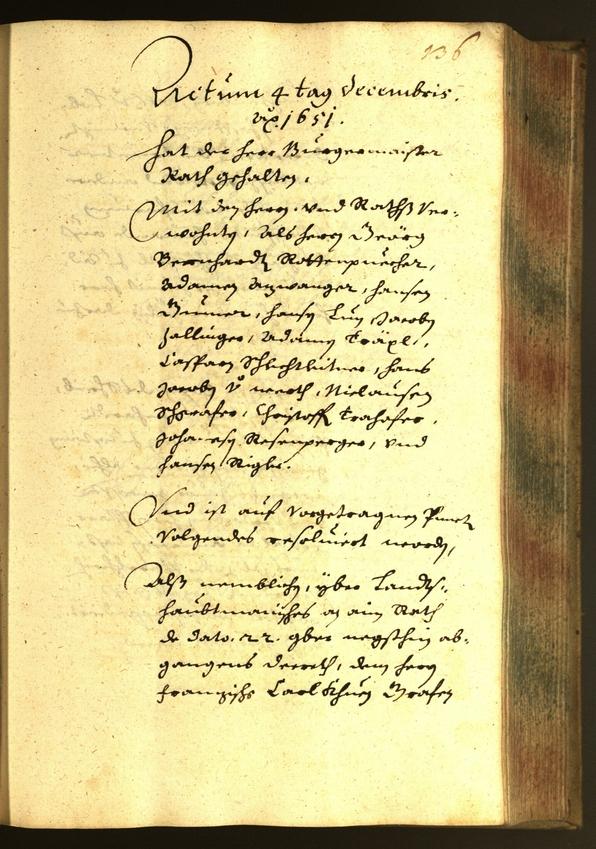 136
Actum 4 tag Decembris.
aō. 1651.
hat der herr Burgermaister
Rath gehalten.
Mit den herrn. und Raths Ver-
wohnten, als herrn Georg
Bernhardt Rottenpuecher,
Adamen Anwanger, Hansen
Gumer, Hansen
Zallinger, Adamen Träpl.,
Casparn Schlechtleitner, Hans
Jacoben v. werth, Niclausen
Schrafer, Christoff Trahofer,
Johannesen Rosenperger, und
Hansen Rigler.
Und ist auf vorgetragnen Punct
volgendes resolviert worden,
Alß nemblichen, yber Landts-
haubtmanisches an ain Rath
de dato. 22. 9ber negsthin ab-
gangens decreth, dem herrn
Franzische Carl Khuen Grafen